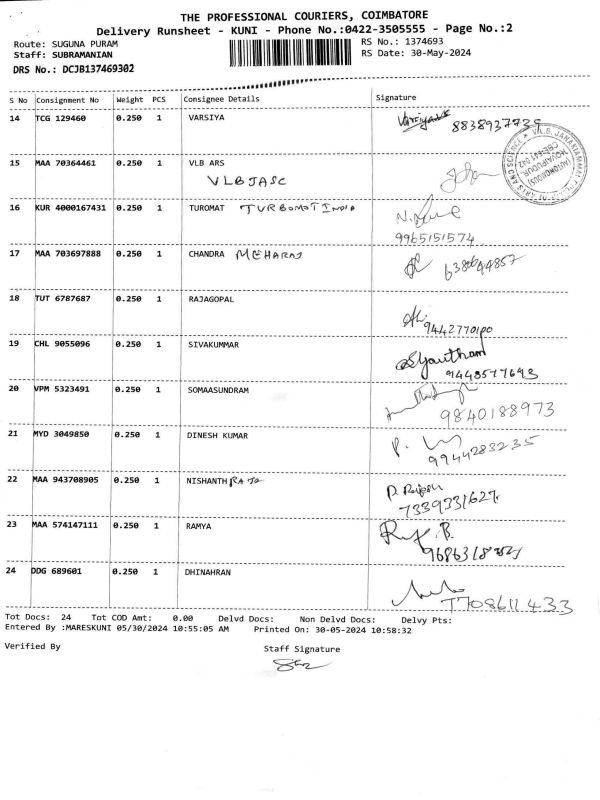 THE PROFESSIONAL COURIERS, COIMBATORE
Delivery Runsheet - KUNI - Phone No.:0422-3505555 - Page No.:2
Route: SUGUNA PURAM RS No.: 1374693
Staff: SUBRAMANIAN RS Date: 30-May-2024
DRS No.: DCJB137469302
S No Consignment No Weight PCS Consignee Details Signature
14 TCG 129460 0.250 1 VARSIYA
15 MAA 70364461 0.250 1 VLB ARS
VLBJASC
16 KUR 4000167431 0.250 1 TUROMAT TURBOMOT INDIA
9965151574
17 MAA 703697888 0.250 1 CHANDRA MEHARAJ
18 TUT 6787687 0.250 1 RAJAGOPAL
9442770100
19 CHL 9055096 0.250 1 SIVAKUMMAR
20 VPM 5323491 0.250 1 SOMAASUNDRAM
9840188973
21 MYD 3049850 0.250 1 DINESH KUMAR
9944283235
22 MAA 943708905 0.250 1 NISHANTH RAJA
7339331627
23 MAA 574147111 0.250 1 RAMYA
24 DDG 689601 0.250 1 DHINAHRAN
Tot Docs: 24 Tot COD Amt: 0.00 Delvd Docs: Non Delvd Docs: Delvy Pts:
Entered By :MARESKUNI 05/30/2024 10:55:05 AM Printed On: 30-05-2024 10:58:32
Verified By Staff Signature